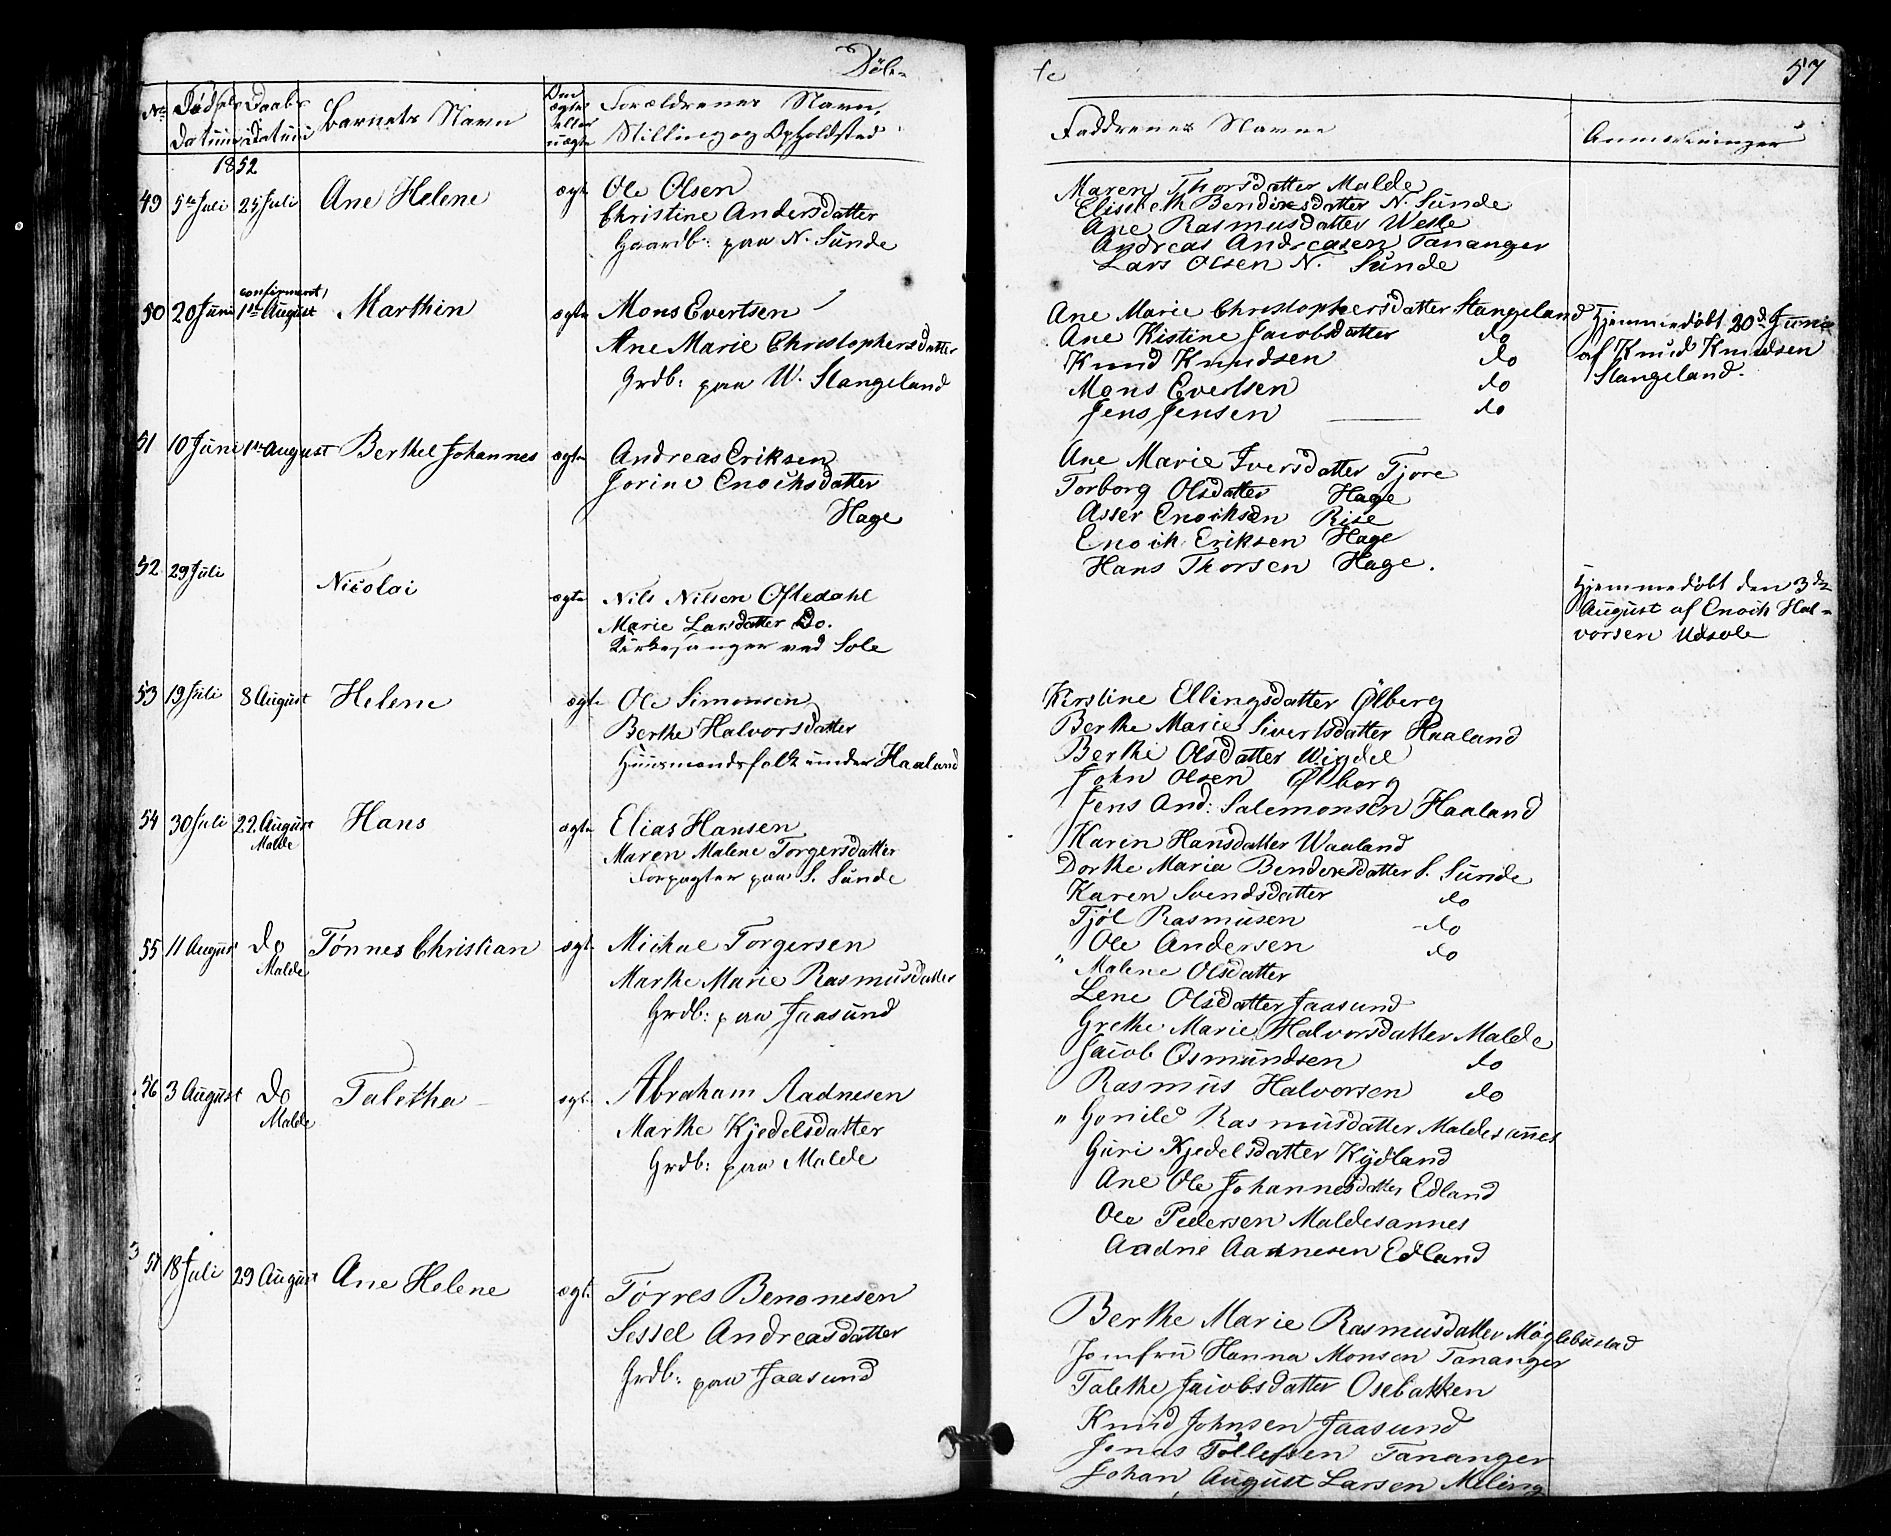 Døbe
No Fødsels Datum Daabs Datum Barnets Navn Om ægte eller uægte Forældrenes Navn, Stilling og Opholdsted
1852
49 5te Juli 25 Juli Ane Helene ægte Ole Olsen
Christine Andersdatter
Gaardb: paa N. Sunde
50 20 Juni confirmeret, 1ste August Marthin ægte Mons Evertsen
Ane Marie Christophersdatter
Grdb: paa W. Stangeland
51 10 Juni 1ste August Berthel Johannes ægte Andreas Eriksen
Jorine Enochsdatter
Hage
52 29 Juli Nicolai ægte Nils Nilsen Oftedahl
Marie Larsdatter Do.
Kirkesanger ved Sole
53 19 Juli 8 August Helene ægte Ole Simonsen
Berthe Halvorsdatter
Huusmandsfolk under Haaland
54 30 Juli 22 August Malde Hans ægte Elias Hansen
Maren Malene Torgersdatter
Forpagter paa S. Sunde
55 11 August Do Malde Tønnes Christian ægt. Michae Torgersen
Marthe Marie Rasmusdatter
Grdb: paa Jaasund
56 3 August Do Malde Taletha ægt. Abraham Aadnesen
Marthe Kjedelsdatter
Grdb: paa Malde
57 18 Juli 29 August Ane Helene ægt. Tørres Benonesen
Sessel Andreasdatter
Grdb: paa Jaasund
te 57
Faddrenes Navne Anmærkninger
Maren Thorsdatter Malde
Elisabeth Bendixsdatter N. Sunde
Ane Rasmusdatter
Andreas Andreasen Tananger
Lars Olsen N. Sunde
Ane Marie Christophersdatter Stangeland
Ane Kistine Jacobsdatter do
Knud Knudsen do
Mons Evertsen do
Jens Jensen do
Hjemmedøbt 20de Junie
af Knud Knudsen
Stangeland.
Ane Marie Iversdatter Tjore
Torborg Olsdatter Hage
Asser Enochsen Rise
Enoch Eriksen Hage
Hans Thorsen Hage.
Hjemmedøbt den 3de
August af Enoch Hal-
vorsen Udsole
Kirstine Ellingsdatter Ølberg
Berthe Marie Sivertsdatter Haaland
Berthe Olsdatter Wigdel
John Olsen Ølberg
Jens And: Salemonsen Haaland
Karen Hansdatter Waaland
Dorthe Maria Bendixsdatter S. Sunde
Karen Svendsdatter do
Tjøl Rasmusen do
Ole Andersen do
" Malene Olsdatter
Lene Olsdatter Jaasund
Grethe Marie Halvorsdatter Malde
Jacob Osmundsen do
Rasmus Halvorsen do
" Gunild Rasmusdatter Maldesannes
Guri Kjedelsdatter Kydland
Ane Ole Johannesdatter Edland
Ole Pedersen Maldesannes
Aadne Aadnesen Edland
Berthe Marie Rasmusdatter Møglebustad
Jomfru Hanna Monsen Tananger
Talethe Jacobsdatter Osebakken
Knud Johnsen Jaasund
Jonas Tollefsen Tananger
Johan August Larsen Meling